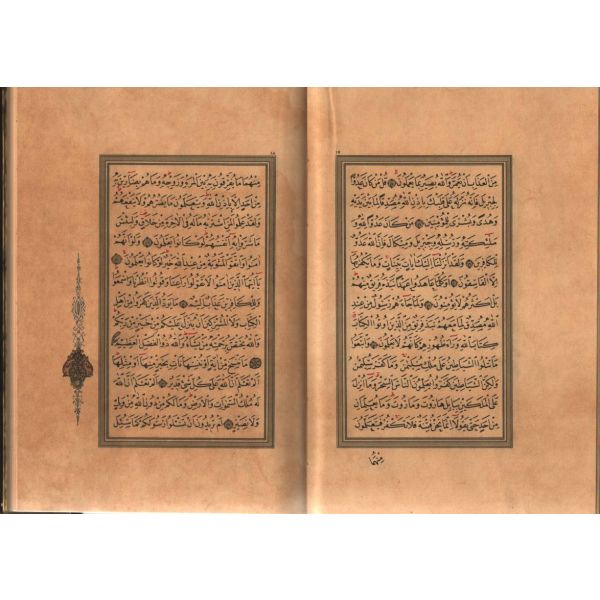 مِنَ الْعَذَابِ أَنْ يُعَمَّرَ وَاللَّهُ بَصِيرٌ بِمَا يَعْمَلُونَ قُلْ مَنْ كَانَ عَدُوًّا
لِجِبْرِيلَ فَإِنَّهُ نَزَّلَهُ عَلَى قَلْبِكَ بِإِذْنِ اللَّهِ مُصَدِّقًا لِمَا بَيْنَ يَدَيْهِ
وَهُدًى وَبُشْرَى لِلْمُؤْمِنِينَ مَنْ كَانَ عَدُوًّا لِلَّهِ وَ
مَلٰئِكَتِهِ وَرُسُلِهِ وَجِبْرِيلَ وَمِيكَالَ فَإِنَّ اللَّهَ عَدُوٌّ
لِلْكَافِرِينَ وَلَقَدْ أَنْزَلْنَا إِلَيْكَ آيَاتٍ بَيِّنَاتٍ وَمَا يَكْفُرُ بِهَا
إِلَّا الْفَاسِقُونَ أَوَكُلَّمَا عَاهَدُوا عَهْدًا نَبَذَهُ فَرِيقٌ مِنْهُمْ
بَلْ أَكْثَرُهُمْ لَا يُؤْمِنُونَ وَلَمَّا جَاءَهُمْ رَسُولٌ مِنْ عِنْدِ
اللَّهِ مُصَدِّقٌ لِمَا مَعَهُمْ نَبَذَ فَرِيقٌ مِنَ الَّذِينَ أُوتُوا الْكِتَابَ
كِتَابَ اللَّهِ وَرَاءَ ظُهُورِهِمْ كَأَنَّهُمْ لَا يَعْلَمُونَ وَاتَّبَعُوا
مَا تَتْلُوا الشَّيَاطِينُ عَلَى مُلْكِ سُلَيْمٰنَ وَمَا كَفَرَ سُلَيْمٰنُ
وَلَكِنَّ الشَّيَاطِينَ كَفَرُوا يُعَلِّمُونَ النَّاسَ السِّحْرَ وَمَا أُنْزِلَ
عَلَى الْمَلَكَيْنِ بِبَابِلَ هَارُوتَ وَمَارُوتَ وَمَا يُعَلِّمَانِ
مِنْ أَحَدٍ حَتَّى يَقُولَا إِنَّمَا نَحْنُ فِتْنَةٌ فَلَا تَكْفُرْ فَيَتَعَلَّمُونَ
مِنْهُمَا
مِنْهُمَا مَا يُفَرِّقُونَ بِهِ بَيْنَ الْمَرْءِ وَزَوْجِهِ وَمَا هُمْ بِضَارِّينَ بِهِ
مِنْ أَحَدٍ إِلَّا بِإِذْنِ اللَّهِ وَيَتَعَلَّمُونَ مَا يَضُرُّهُمْ وَلَا يَنْفَعُهُمْ
وَلَقَدْ عَلِمُوا لَمَنِ اشْتَرَاهُ مَا لَهُ فِي الْآخِرَةِ مِنْ خَلَاقٍ وَلَبِئْسَ
مَا شَرَوْا بِهِ أَنْفُسَهُمْ لَوْ كَانُوا يَعْلَمُونَ وَلَوْ أَنَّهُمْ
آمَنُوا وَاتَّقَوْا لَمَثُوبَةٌ مِنْ عِنْدِ اللَّهِ خَيْرٌ لَوْ كَانُوا يَعْلَمُونَ
يَا أَيُّهَا الَّذِينَ آمَنُوا لَا تَقُولُوا رَاعِنَا وَقُولُوا انْظُرْنَا وَاسْمَعُوا
وَلِلْكَافِرِينَ عَذَابٌ أَلِيمٌ مَا يَوَدُّ الَّذِينَ كَفَرُوا مِنْ أَهْلِ
الْكِتَابِ وَلَا الْمُشْرِكِينَ أَنْ يُنَزَّلَ عَلَيْكُمْ مِنْ خَيْرٍ مِنْ رَبِّكُمْ
وَاللَّهُ يَخْتَصُّ بِرَحْمَتِهِ مَنْ يَشَاءُ وَاللَّهُ ذُو الْفَضْلِ الْعَظِيمِ
مَا نَنْسَخْ مِنْ آيَةٍ أَوْ نُنْسِهَا نَأْتِ بِخَيْرٍ مِنْهَا أَوْ مِثْلِهَا
أَلَمْ تَعْلَمْ أَنَّ اللَّهَ عَلَى كُلِّ شَيْءٍ قَدِيرٌ أَلَمْ تَعْلَمْ أَنَّ اللَّهَ
لَهُ مُلْكُ السَّمٰوَاتِ وَالْأَرْضِ وَمَا لَكُمْ مِنْ دُونِ اللَّهِ مِنْ وَلِيٍّ
وَلَا نَصِيرٍ أَمْ تُرِيدُونَ أَنْ تَسْأَلُوا رَسُولَكُمْ كَمَا سُئِلَ